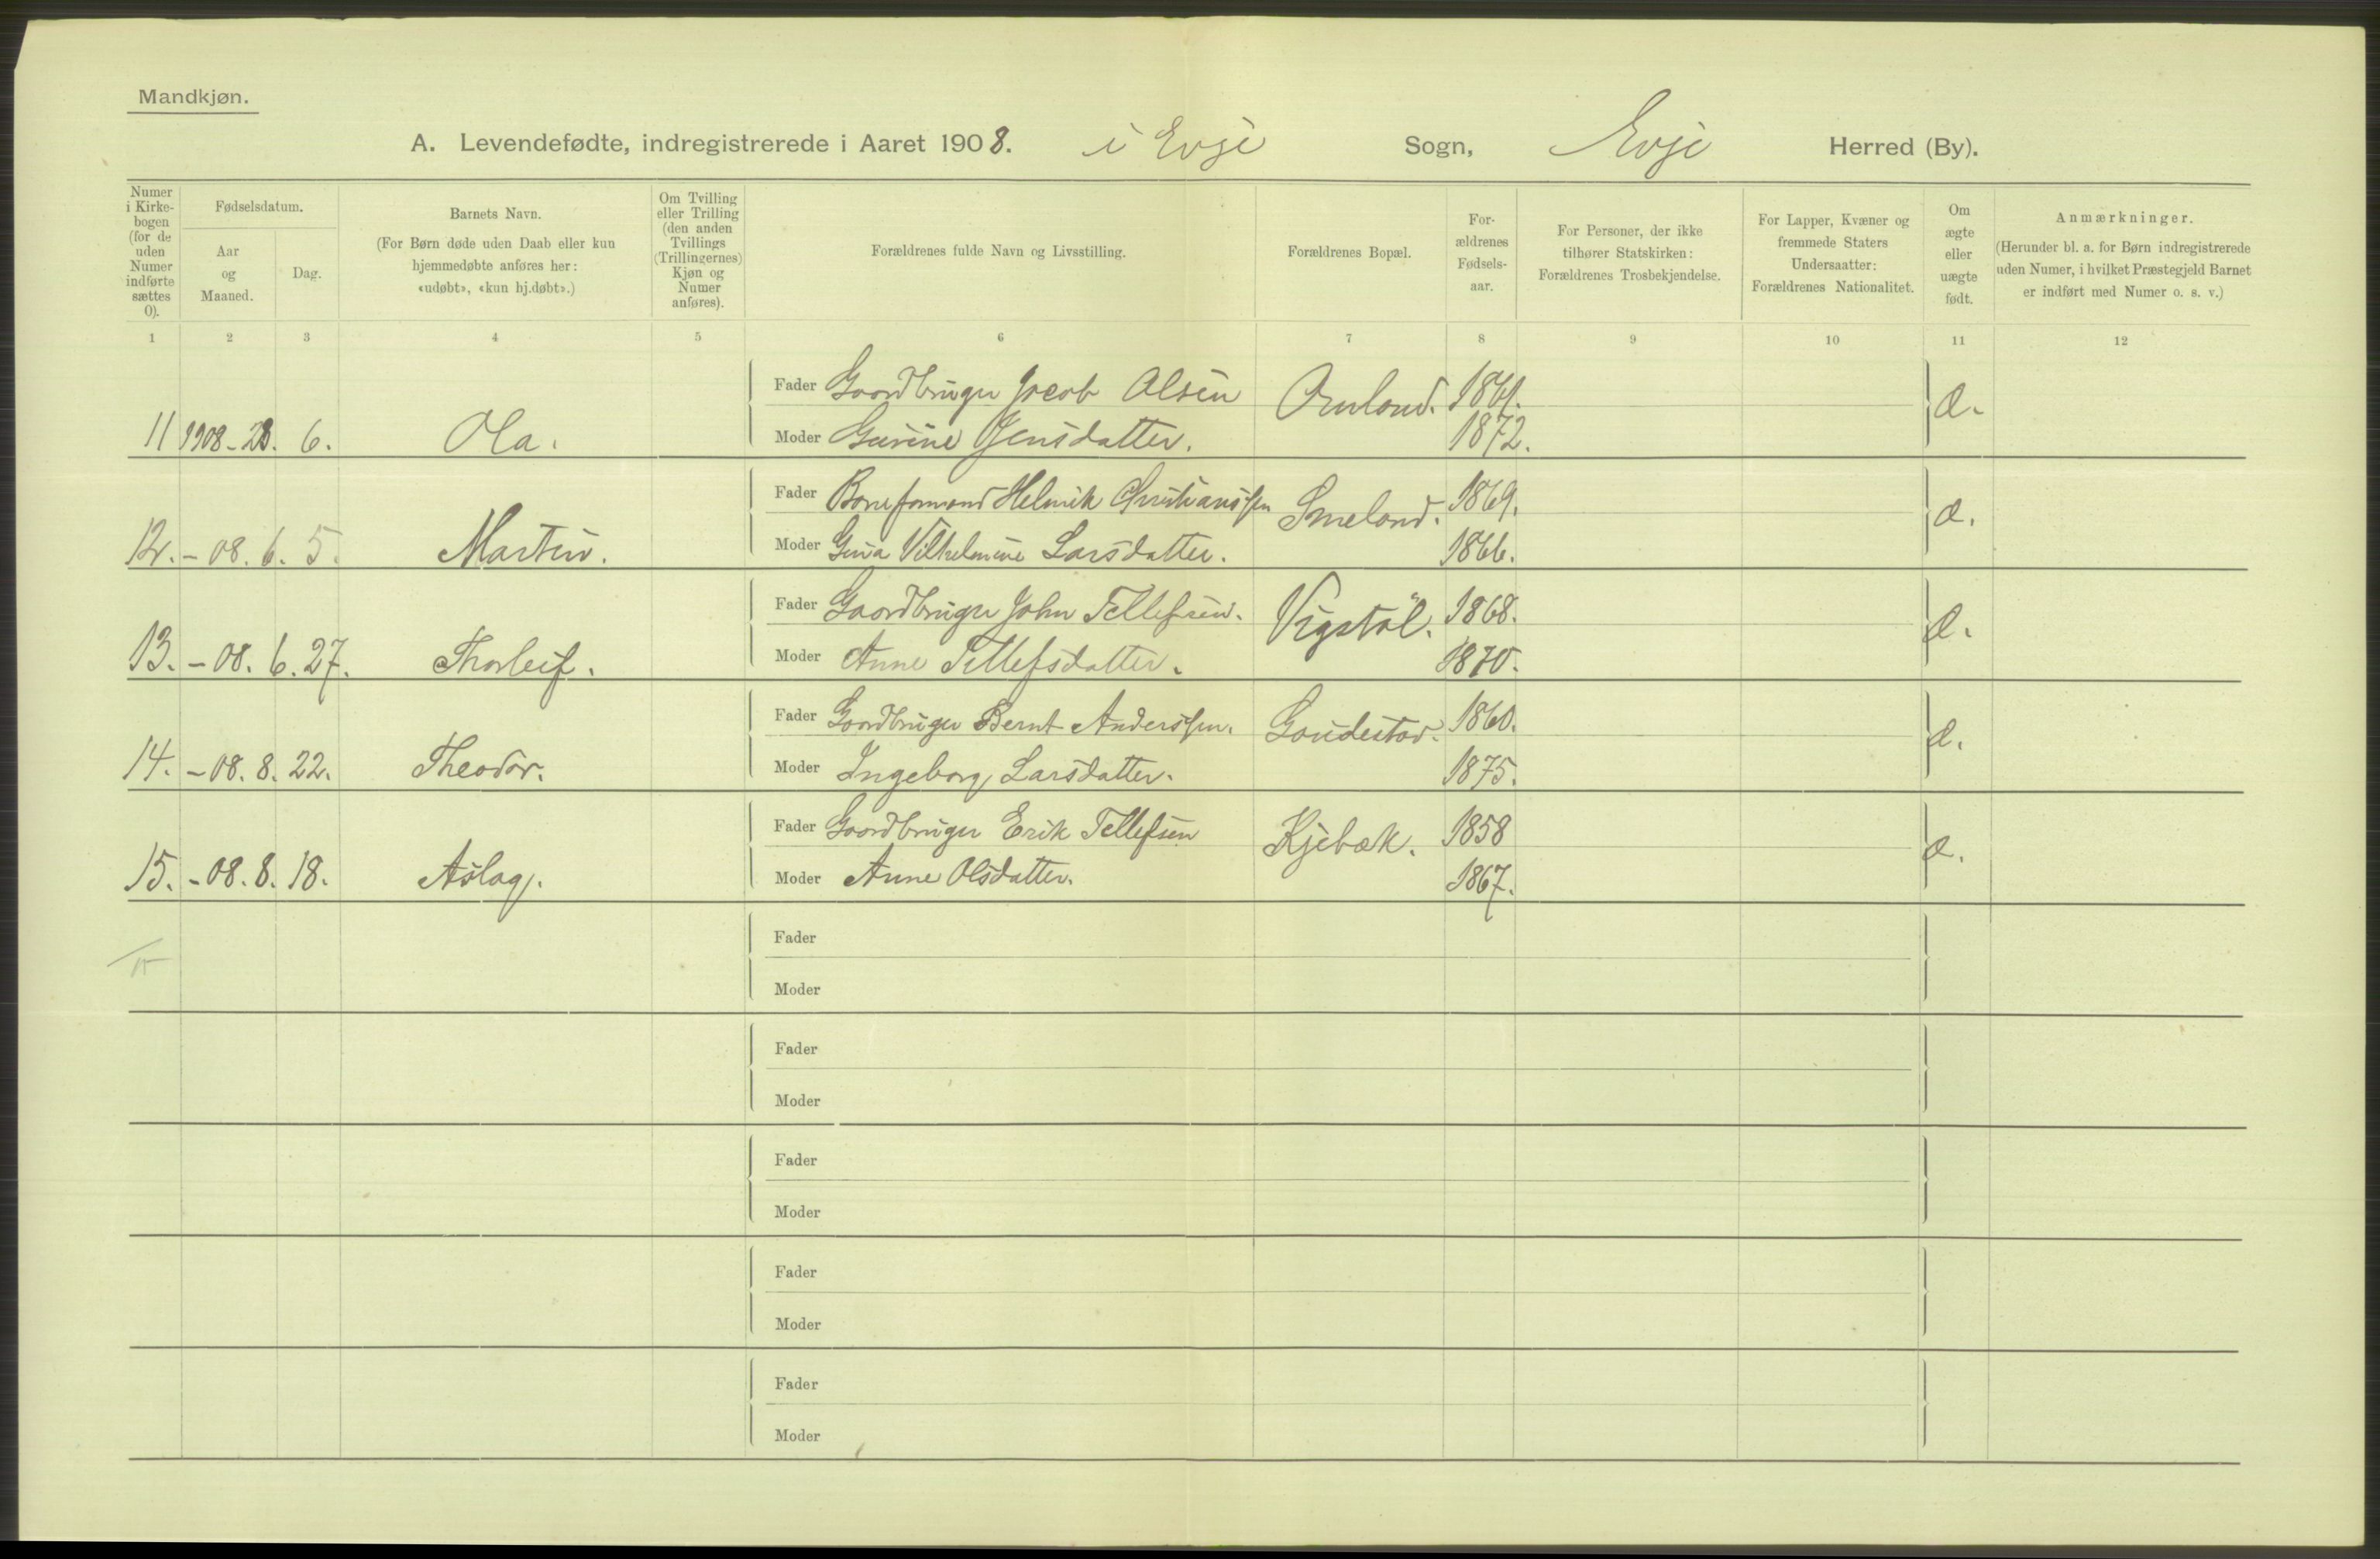 Mandkjøn.
A. Levendefødte, indregistrerede i Aaret 1908. i Evje Sogn, Evje Herred (By).
Numer i Kirke-bogen (for de uden Numer indførte sættes 0).
Fødselsdatum.
Aar og Maaned.
Dag.
Barnets Navn.
(For Børn døde uden Daab eller kun hjemmedøbte anføres her: «udøbt», «kun hj.døbt».)
Om Tvilling eller Trilling (den anden Tvillings (Trillingernes) Kjøn og Numer anføres).
Forældrenes fulde Navn og Livsstilling.
Forældrenes Bopæl.
For-ældrenes Fødsels-aar.
For Personer, der ikke tilhører Statskirken: Forældrenes Trosbekjendelse.
For Lapper, Kvæner og fremmede Staters Undersaatter: Forældrenes Nationalitet.
Om ægte eller uægte født.
Anmærkninger.
(Herunder bl. a. for Børn indregistrerede uden Numer, i hvilket Præstegjeld Barnet er indført med Numer o. s. v.)
1 2 3 4 5 6 7 8 9 10 11 12
Fader Gaardbruger Jacob Olsen 1861.
11 1908 6. Ola. Moder Gurine Jensdatter. 1872. æ.
Fader Helmik Christianssen Smeland. 1869.
12. - 08. 6. 5. Martin. Moder Gina Vilhelmine Larsdatter. 1866. æ.
Fader Gaardbruger John Tellefsen. Vigstöl. 1868.
13. - 08. 6. 27. Thorleif. Moder Anne Tellefsdatter. 1870. æ.
Fader Gaardbruger Bernt Anderssen. 1860.
14. - 08. 8. 22. Theodor. Moder Ingeborg Larsdatter. 1875. æ.
Fader Gaardbruger Erik Tellefsen Kjebæk. 1858
15. - 08. 8. 18. Aslag. Moder Anne Olsdatter. 1867. æ.
Fader
15
Moder
Fader
Moder
Fader
Moder
Fader
Moder
Fader
Moder